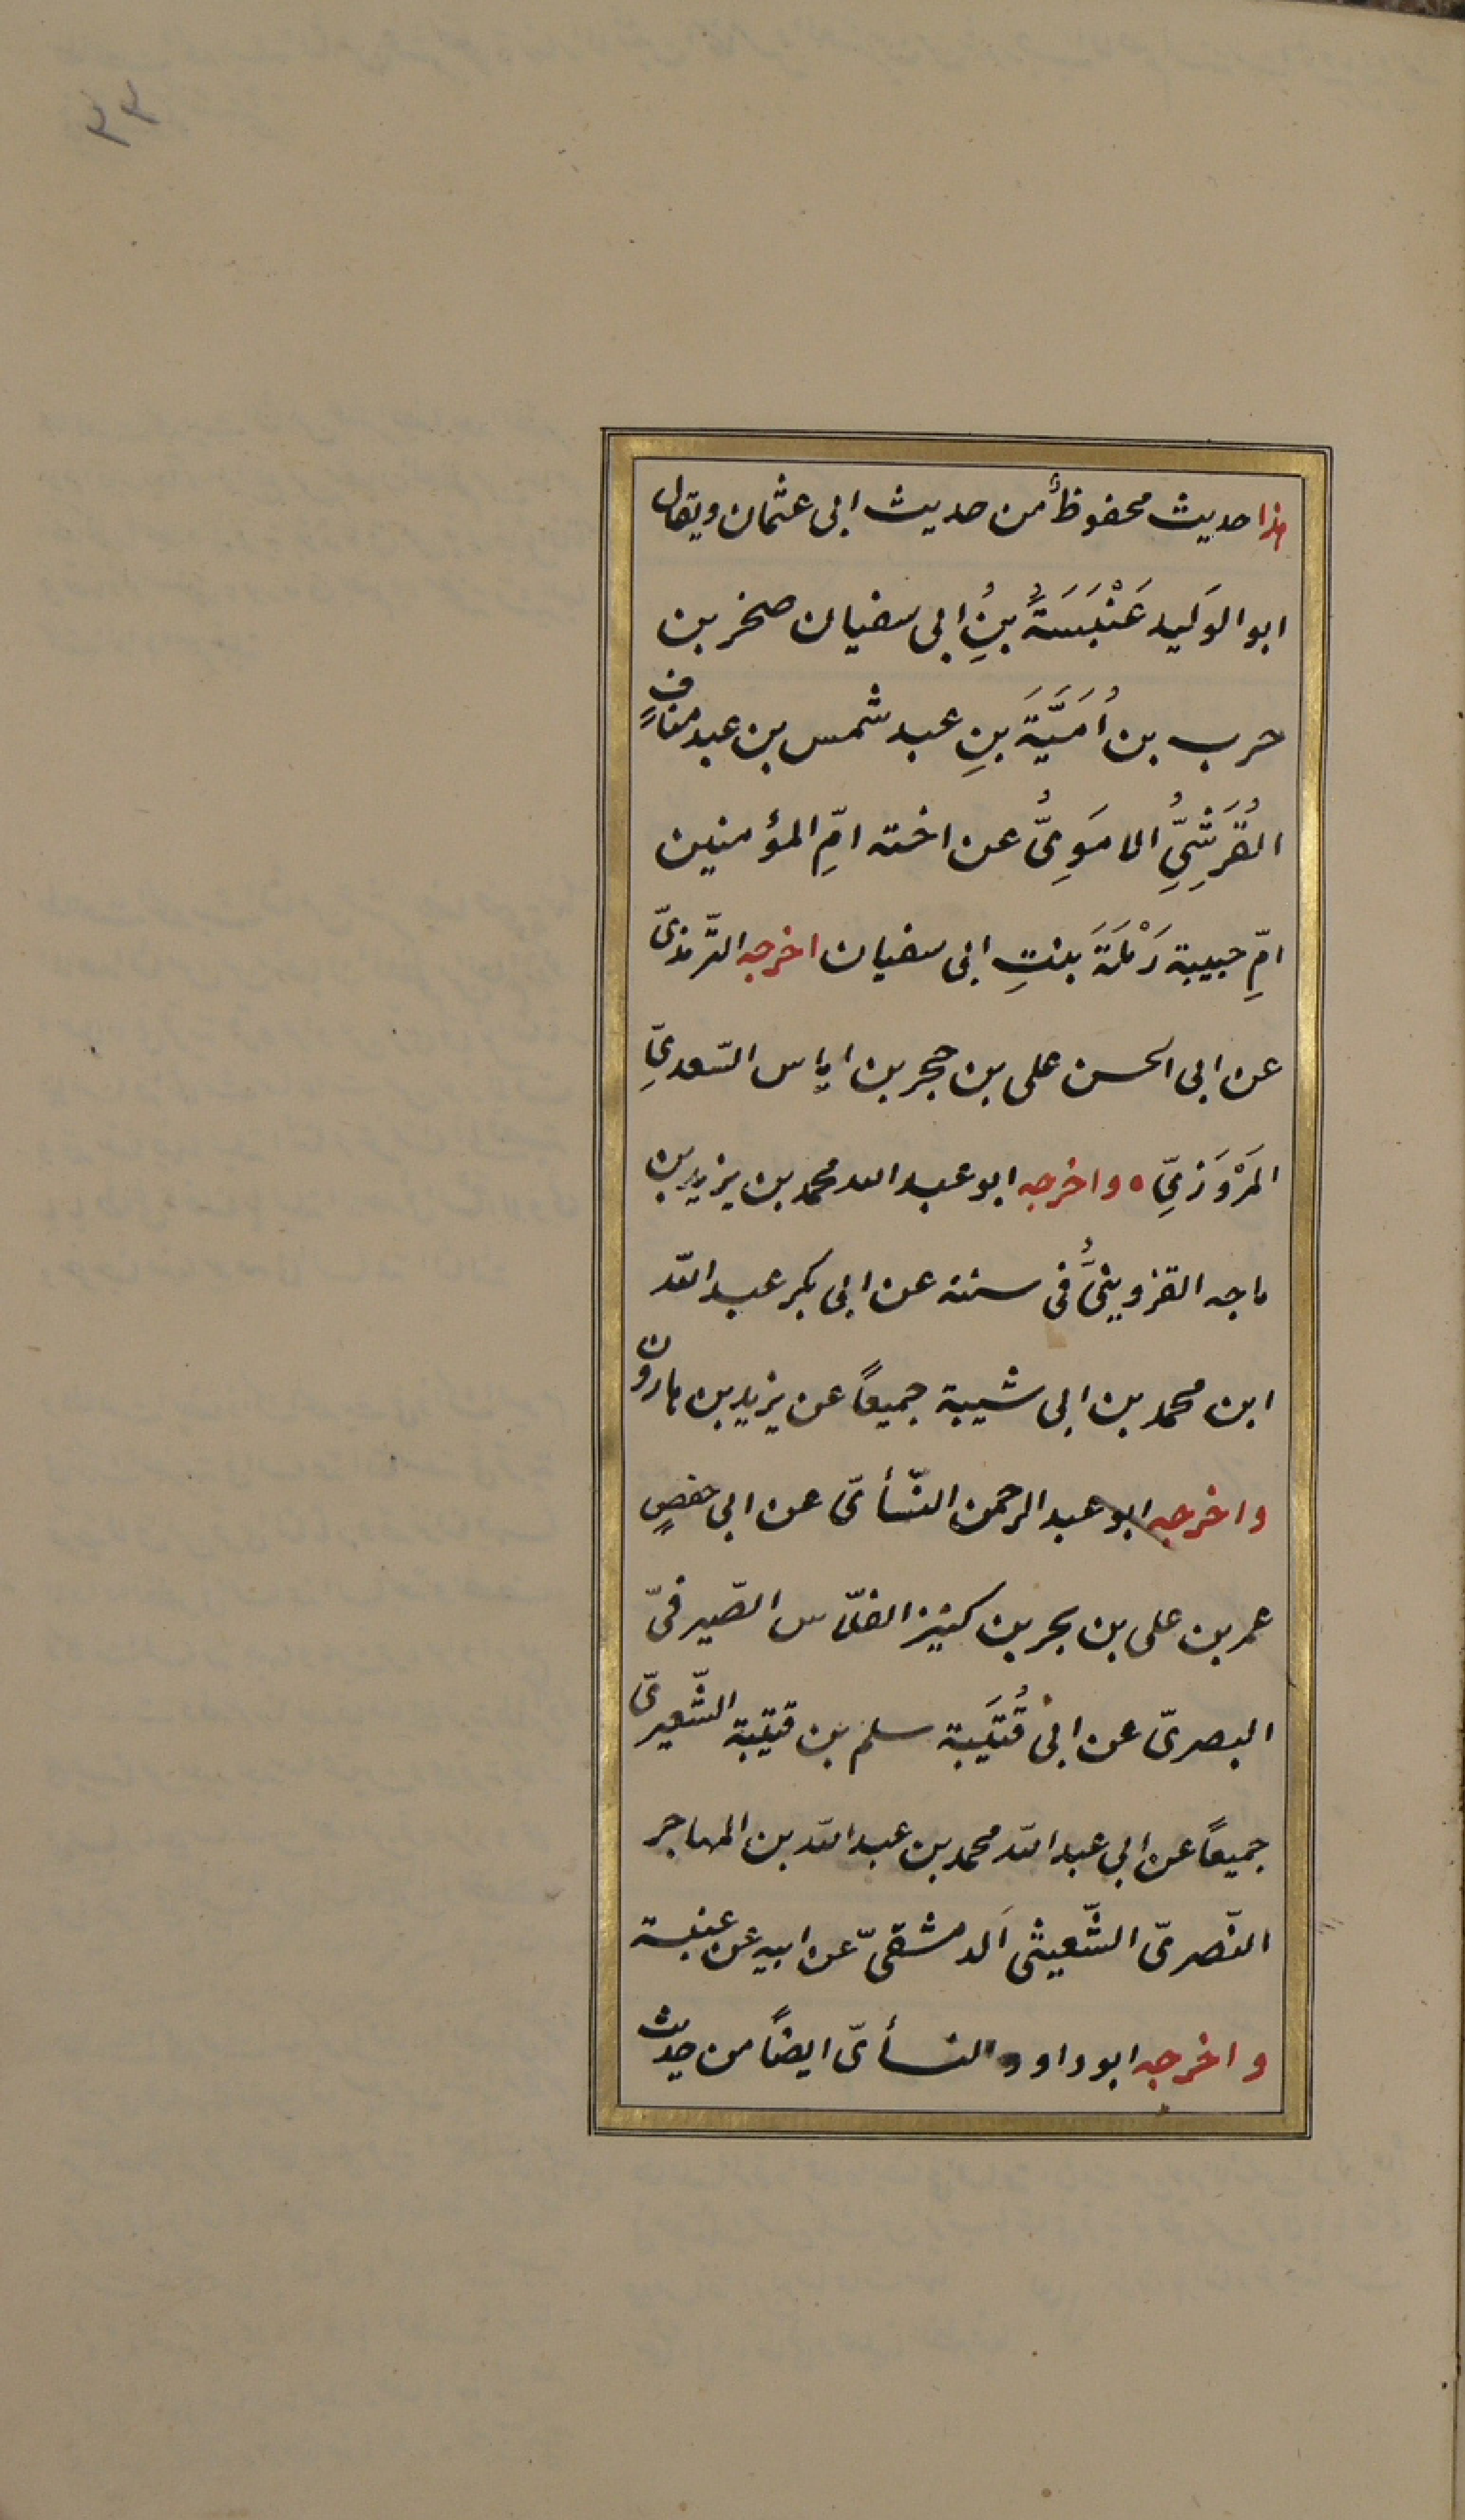 ٤٤
هذا حديث محفوظٌ من حديث ابى عثمان ويقال
ابو الوَليد عَنْبَسَةُ بنُِ ابى سفيان صخر بن
حرب بن اُمَيَّةَ بنِ عبد شمس بن عبد منافٍ
القُرَشِيُِّ الامَوِىُّ عن اخته امِّ المؤمنين
امِّ حبيبة رَمْلَةَ بنتِ ابى سفيان اخرجه الترمذىّ
عن ابى الحسن على بن حجر بن اياس السّعدىِّ
المَرْوَزِىِّ ه واخرجه ابو عبد الله محمد بن يزيد بن
ماجه القزوينىُّ فى سننه عن ابى بكر عبد الله
ابن محمد بن ابى شيبة جميعاً عن يزيد بن هارون
واخرجه ابو عبد الرحمن النّسأىّ عن ابى حفصٍ
عمر بن على بن بحر بن كنيز الفلّاس الصّيرفىّ
البصرىّ عن ابى قُتَيبة سلم بن قتيبة الشّعيرىّ
جميعاً عن ابى عبد الله محمد بن عبد الله بن المهاجر
النّصرىّ الشّعيثى الَدمشقىّ عن ابيه عن عنبسة
واخرجه ابو داود والنسأىّ ايضاً من حديث